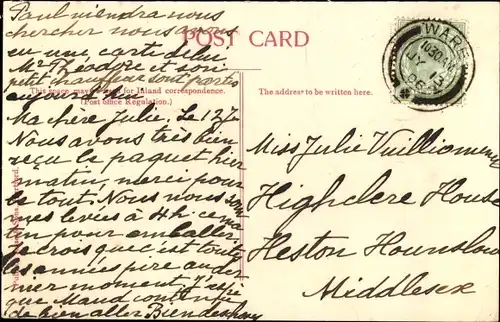 Paul viendra nous
chercher nous avons
eu une carte de lui
Mr Théodore et son
petit chauffeur sont partis
aujourd'hui
POST CARD
This space may be used for Inland correspondence.
(Post office Regulation.)
The address to be written here.
WARE
10.30 AM
JY 13
Ma chère Julie. Le 12 J
Nous avons très bien
reçu le paquet hier
matin, merci pour
le tout. Nous nous som
mes levées à 4h. ce ma
tin pour emballer.
Je crois que c'est toutes
les années pire au der
nier moment. J'espère
que Maud continue
de bien aller. Bien des
Miss Julie Vuilliomenet
Highclere House
Heston Hounslow
Middlesex